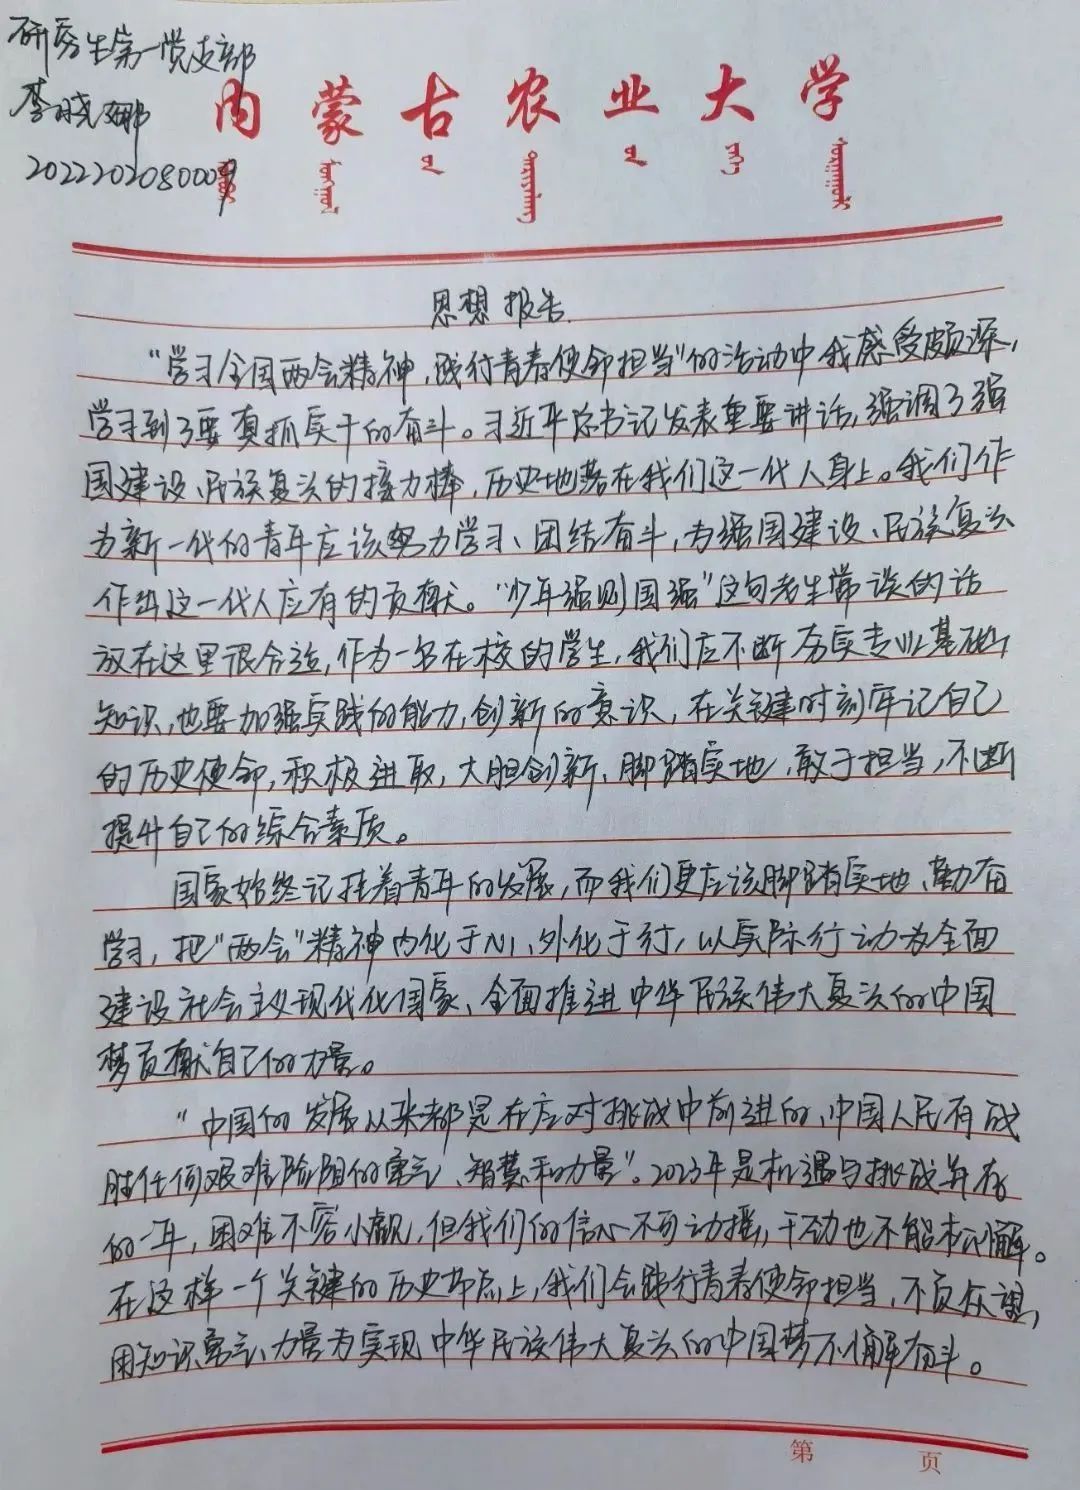 研究生第一党支部
李晓娜
2022202080009
内蒙古农业大学
思想报告
“学习全国两会精神,践行青春使命担当”的活动中我感受颇深,
学习到了要真抓实干的奋斗。习近平总书记发表重要讲话,强调了强
国建设、民族复兴的接力棒,历史地落在我们这一代人身上。我们作
为新一代的青年应该努力学习、团结奋斗,为强国建设、民族复兴
作出这一代人应有的贡献。“少年强则国强”这句老生常谈的话
放在这里很合适,作为一名在校的学生,我们应不断夯实专业基础
知识,也要加强实践的能力,创新的意识,在关键时刻牢记自己
的历史使命,积极进取,大胆创新、脚踏实地,敢于担当,不断
提升自己的综合素质。
国家始终记挂着青年的发展,而我们更应该脚踏实地、勤奋
学习,把“两会”精神内化于心、外化于行,以实际行动为全面
建设社会主义现代化国家、全面推进中华民族伟大复兴的中国
梦贡献自己的力量。
“中国的发展从来都是在应对挑战中前进的,中国人民有战
胜任何艰难险阻的勇气、智慧和力量”。2023年是机遇与挑战并存
的一年,困难不容小觑,但我们的信心不可动摇,干劲也不能松懈。
在这样一个关键的历史节点上,我们会践行青春使命担当,不负众望,
用知识、勇气、力量为实现中华民族伟大复兴的中国梦不懈奋斗。
第 页